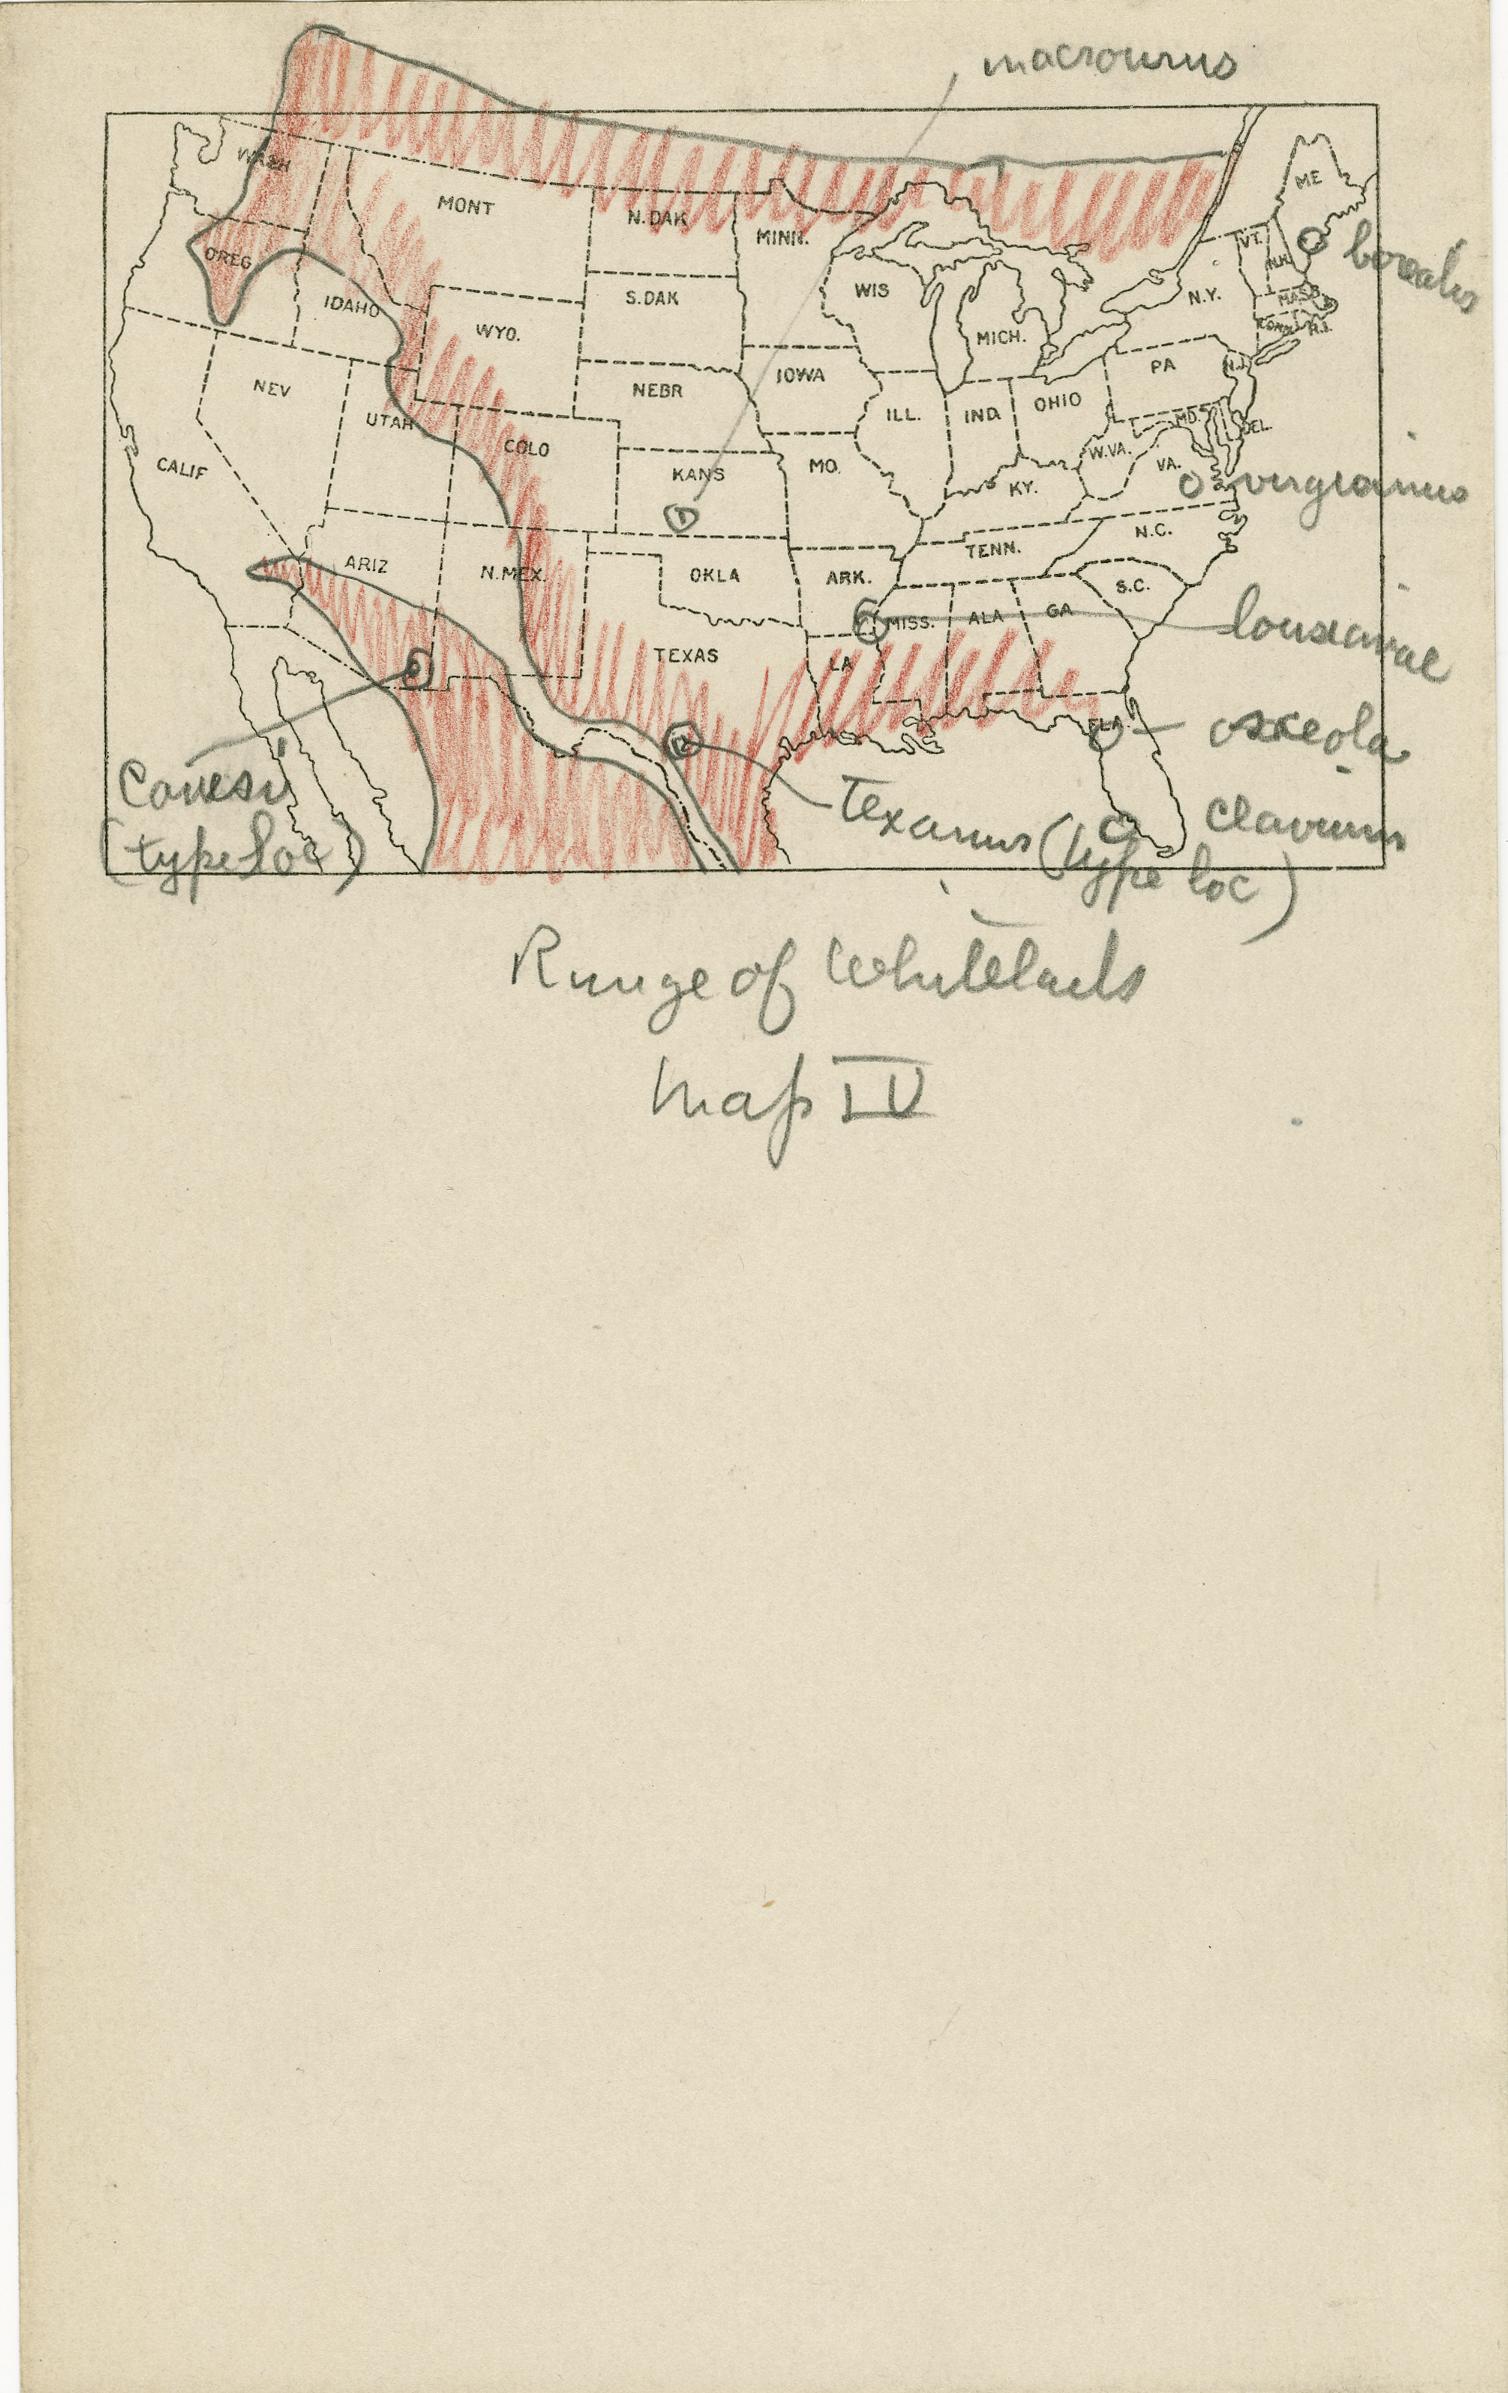 macrourus
WASH
MONT
N.DAK
MINN.
ME
VT.
N.H.
borealis
OREG
IDAHO
WYO.
S.DAK
WIS
MICH.
N.Y.
MASS.
CONN.
R.I.
NEV
UTAH
COLO
NEBR
IOWA
ILL.
IND.
OHIO
PA
N.J.
MD.
DEL.
CALIF
KANS
MO.
KY.
W.VA.
VA.
virginianus
ARIZ
N.MEX.
OKLA
ARK.
TENN.
N.C.
S.C.
MISS.
ALA
GA
louisianae
TEXAS
LA
FLA.
osceola
Couesi
(type loc)
Texanus (type loc)
clavium
Range of Whitetails
Map IV